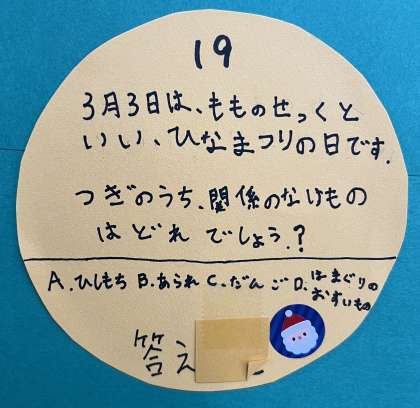 19
3月3日は、もものせっくと
いい、ひなまつりの日です.
つぎのうち、関係のなけもの
はどれでしょう.?
A.ひしもち B.あられ C.だんご D.はまぐりの
おすいもの
答え